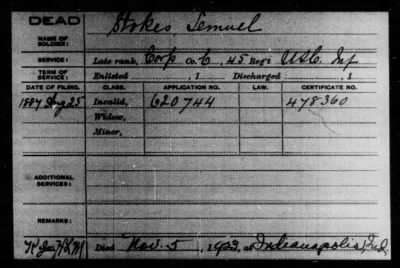 DEAD
NAME OF SOLDIER: Stokes, Lemuel
SERVICE: Late rank, Corp Co. C, 45 Reg't U.S.C. Inf
TERM OF SERVICE: Enlisted , 1 Discharged , 1
DATE OF FILING. CLASS. APPLICATION NO. LAW. CERTIFICATE NO.
1887 Aug 25 Invalid, 620744 478360
Widow,
Minor,
ADDITIONAL SERVICES:
REMARKS:
Died Nov. 5, 1923, at Indianapolis, Ind.